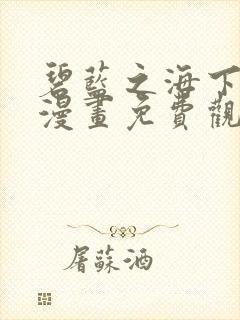 碧藍之海下
漫畫免費觀
屠蘇酒